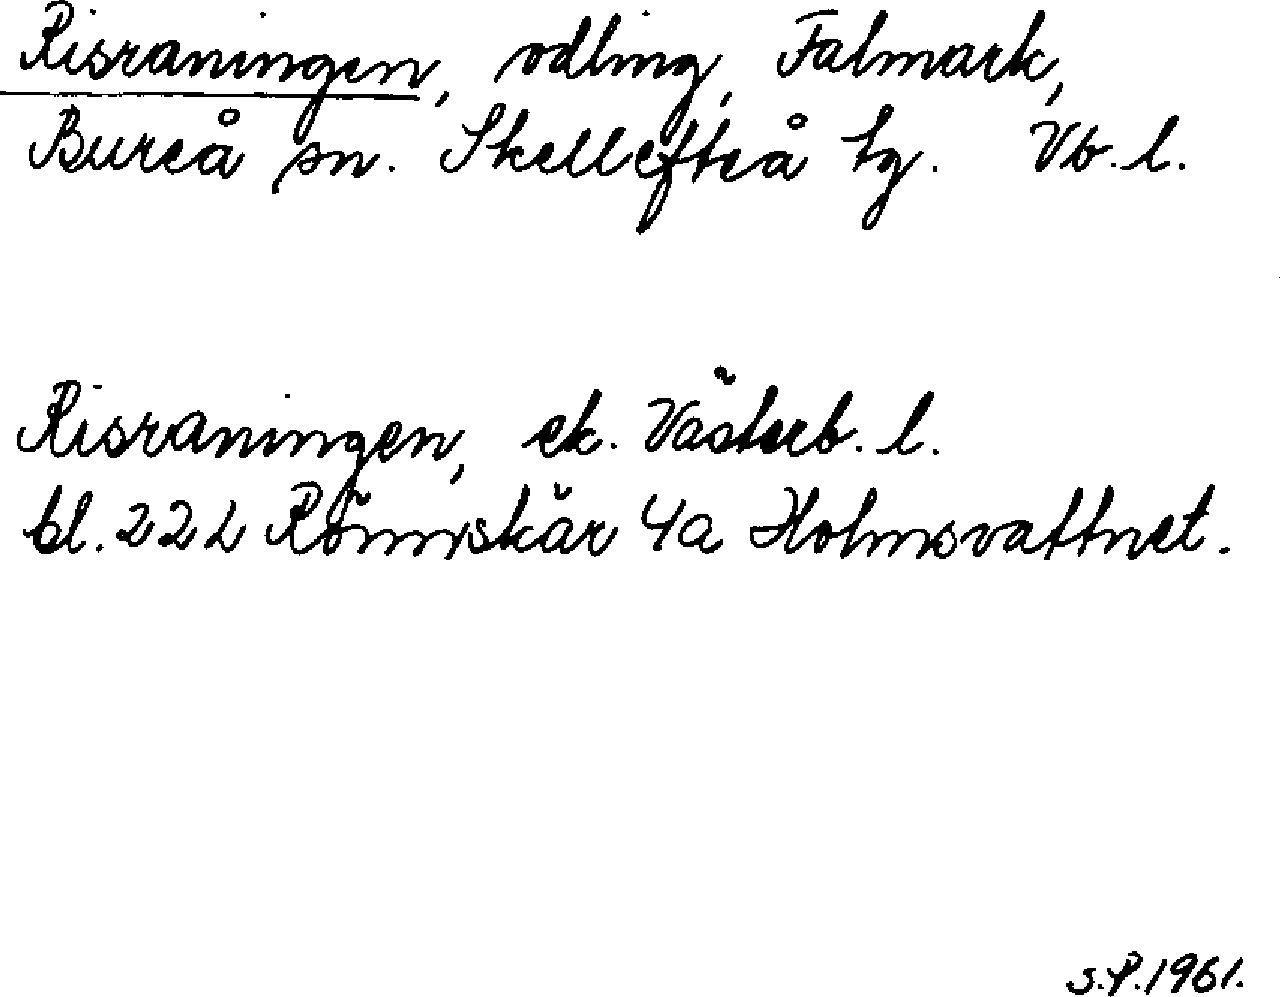 Risraningen, odling, Falmark,
Bureå sn. Skellefteå tg. Vb. l.
Risraningen, ek. Västerb. l.
bl. 22 L Rönnskär 4a Holmsvattnet.
S.P. 1961.